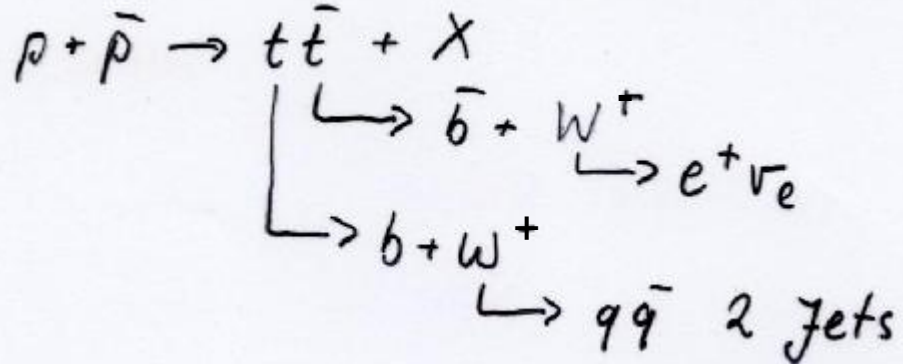 p + p̄ → t t̄ + X
↳ b̄ + W⁺
↳ e⁺ νₑ
↳ b + W⁺
↳ q q̄ 2 Jets